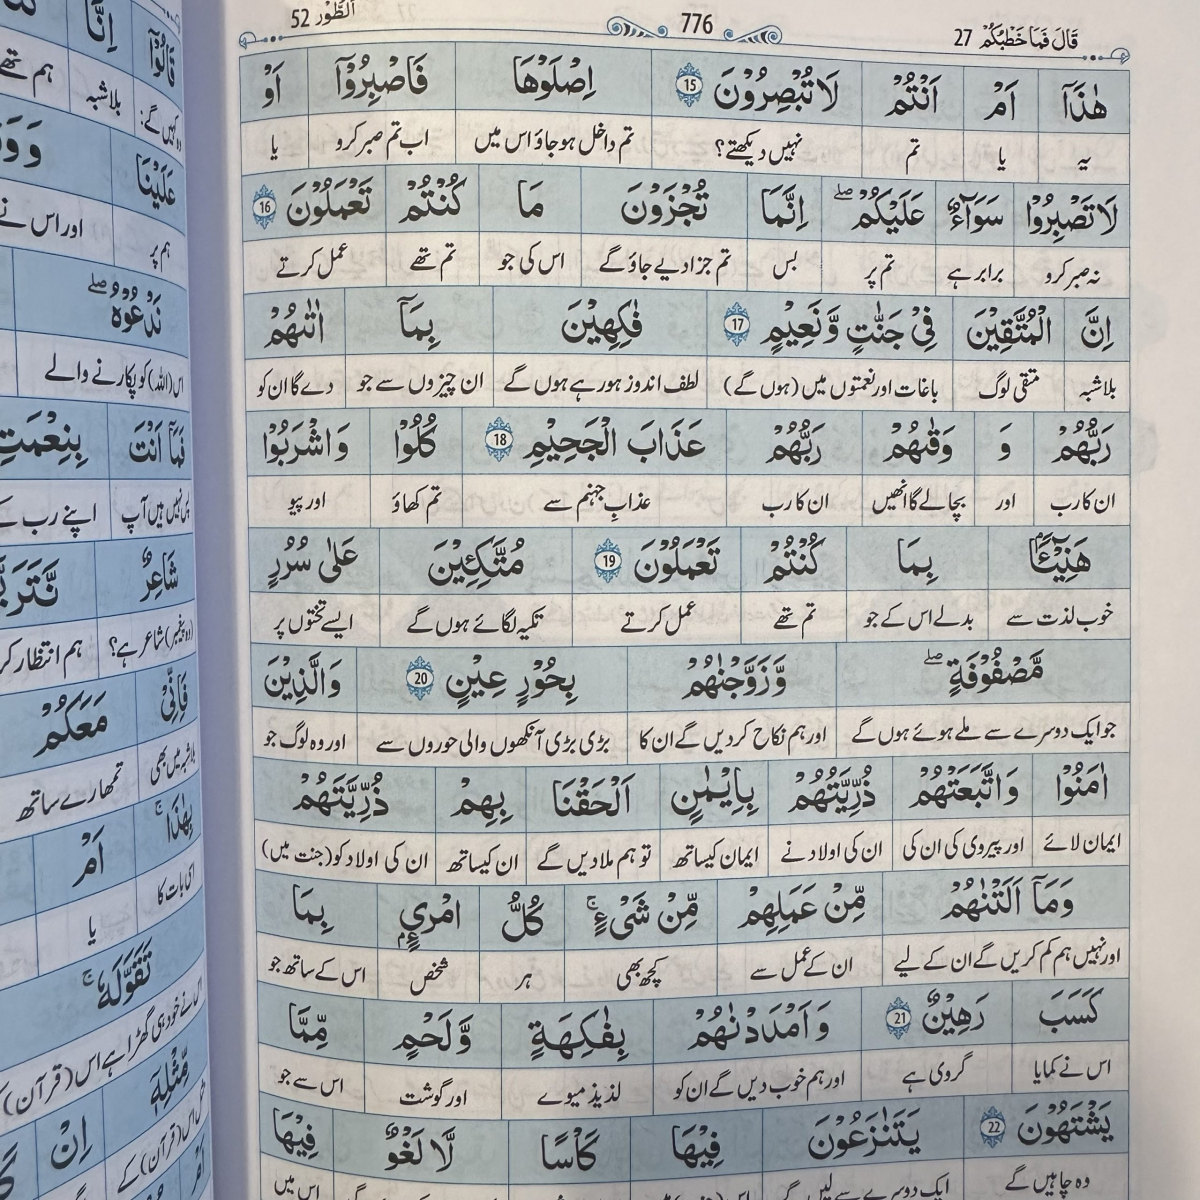 قَالَ فَمَا خَطْبُكُمْ 27
776
اَلطُّوْر 52
هٰذَآ اَمْ اَنْتُمْ لَا تُبْصِرُوْنَ 15 اِصْلَوْهَا فَاصْبِرُوْٓا اَوْ
یہ یا تم نہیں دیکھتے؟ تم داخل ہو جاؤ اس میں اب تم صبر کرو یا
لَا تَصْبِرُوْا سَوَآءٌ عَلَيْكُمْ ۖ اِنَّمَا تُجْزَوْنَ مَا كُنْتُمْ تَعْمَلُوْنَ 16
نہ صبر کرو برابر ہے تم پر بس تم جزا دیے جاؤ گے اس کی جو تم تھے عمل کرتے
اِنَّ الْمُتَّقِيْنَ فِيْ جَنّٰتٍ وَّنَعِيْمٍ 17 فٰكِهِيْنَ بِمَآ اٰتٰىهُمْ
بلاشبہ متقی لوگ باغات اور نعمتوں میں (ہوں گے) لطف اندوز ہو رہے ہوں گے ان چیزوں سے جو دے گا ان کو
رَبُّهُمْ وَ وَقٰىهُمْ رَبُّهُمْ عَذَابَ الْجَحِيْمِ 18 كُلُوْا وَاشْرَبُوْا
ان کا رب اور بچالے گا انھیں ان کا رب عذابِ جہنم سے تم کھاؤ اور پیو
هَنِيْٓـًٔۢا بِمَا كُنْتُمْ تَعْمَلُوْنَ 19 مُتَّكِـِٕيْنَ عَلٰى سُرُرٍ
خوب لذت سے بدلے اس کے جو تم تھے عمل کرتے تکیہ لگائے ہوں گے ایسے تختوں پر
مَّصْفُوْفَةٍ ۖ وَزَوَّجْنٰهُمْ بِحُوْرٍ عِيْنٍ 20 وَالَّذِيْنَ
جو ایک دوسرے سے ملے ہوئے ہوں گے اور ہم نکاح کردیں گے ان کا بڑی بڑی آنکھوں والی حوروں سے اور وہ لوگ جو
اٰمَنُوْا وَاتَّبَعَتْهُمْ ذُرِّيَّتُهُمْ بِاِيْمَانٍ اَلْحَقْنَا بِهِمْ ذُرِّيَّتَهُمْ
ایمان لائے اور پیروی کی ان کی ان کی اولاد نے ایمان کیساتھ تو ہم ملادیں گے ان کیساتھ ان کی اولاد کو (جنت میں)
وَمَآ اَلَتْنٰهُمْ مِّنْ عَمَلِهِمْ مِّنْ شَيْءٍ ۚ كُلُّ امْرِئٍ بِمَا
اور نہیں ہم کم کریں گے ان کے لیے ان کے عمل سے کچھ بھی ہر شخص اس کے ساتھ جو
كَسَبَ رَهِيْنٌ 21 وَاَمْدَدْنٰهُمْ بِفَاكِهَةٍ وَّلَحْمٍ مِّمَّا
اس نے کمایا گروی ہے اور ہم خوب دیں گے ان کو لذیذ میوے اور گوشت اس سے جو
يَشْتَهُوْنَ 22 يَتَنَازَعُوْنَ فِيْهَا كَاْسًا لَّا لَغْوٌ فِيْهَا
وہ چاہیں گے
قَالُوْٓا اِنَّا
وہ کہیں گے: بلاشبہ ہم تھے
عَلَيْنَا
ہم پر اور اس نے
نَدْعُوْهُ ۖ
اس (اللہ) کو پکارنے والے
فَمَآ اَنْتَ بِنِعْمَتِ
پس نہیں ہیں آپ اپنے رب کے
شَاعِرٌ
(وہ پیغمبر) شاعر ہے؟ ہم انتظار کر
فَاِنِّيْ مَعَكُمْ
تمھارے ساتھ
بِهٰذَآ ۚ اَمْ
اس بات کا یا
تَقَوَّلَهٗ ۚ
اس نے خود ہی گھڑا ہے اس (قرآن)
مِّثْلِهٖٓ اِنْ